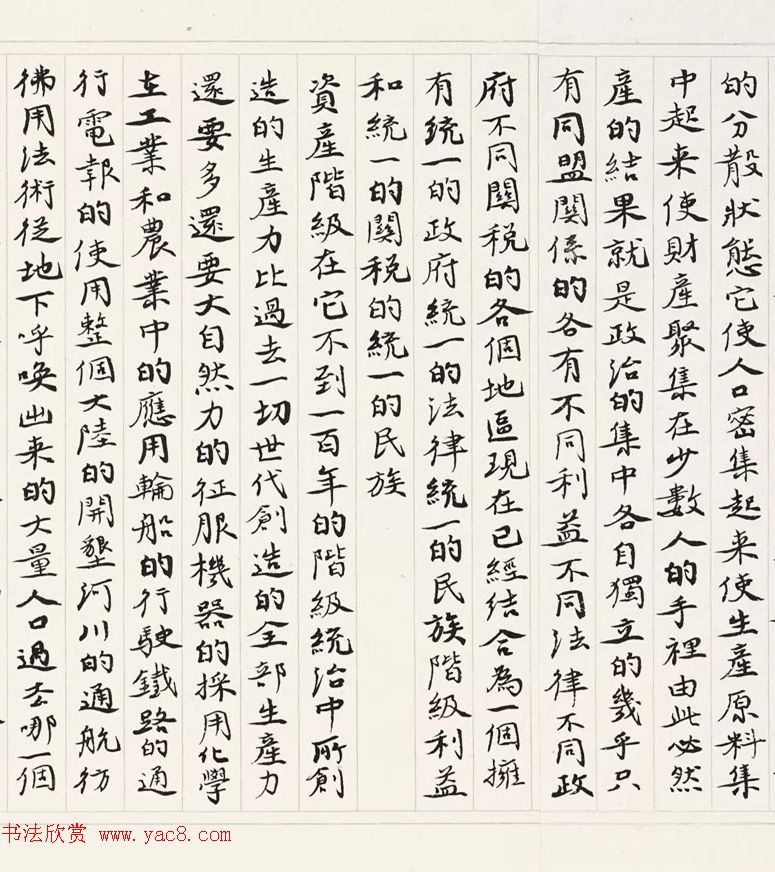 的分散狀態它使人口密集起来使生產原料集
中起来使財產聚集在少數人的手裡由此必然
產的結果就是政治的集中各自獨立的幾乎只
有同盟關係的各有不同利益不同法律不同政
府不同關税的各個地區現在已經结合為一個擁
有統一的政府統一的法律統一的民族階級利益
和統一的關税的統一的民族
資產階級在它不到一百年的階級統治中所創
造的生產力比過去一切世代創造的全部生產力
還要多還要大自然力的征服機器的採用化學
在工業和農業中的應用輪船的行駛鐵路的通
行電報的使用整個大陸的開墾河川的通航彷
彿用法術從地下呼唤出来的大量人口過去哪一個
书法欣赏 www.yac8.com